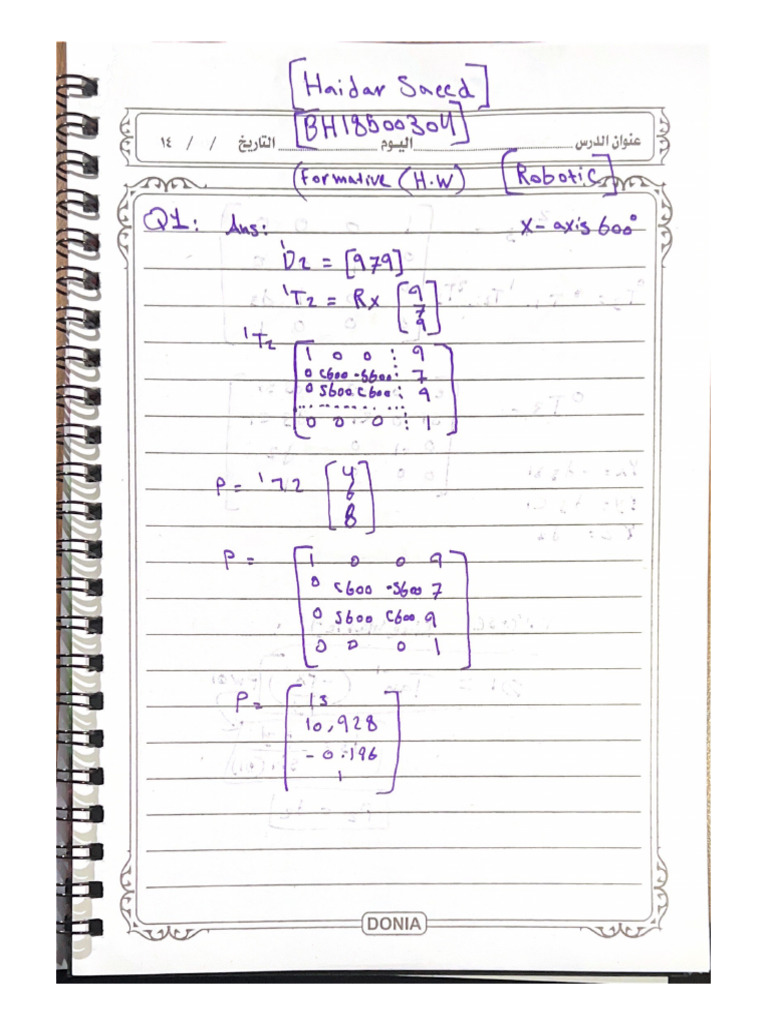 [Haidar Saeed]
[BH18500304]
عنوان الدرس اليوم التاريخ / / ١٤
(Formative (H.W) [Robotic]
Q1: Ans: x-axis 600°
¹D2 = [979]
¹T2 = Rx [9
7
9]
¹T2
[1 0 0 : 9
0 c600 -s600 : 7
0 s600 c600 : 9
0 0 0 : 1]
P = ¹T2 [4
6
8]
P = [1 0 0 9
0 c600 -s600 7
0 s600 c600 9
0 0 0 1]
P = [13
10,928
-0.196
1]
DONIA